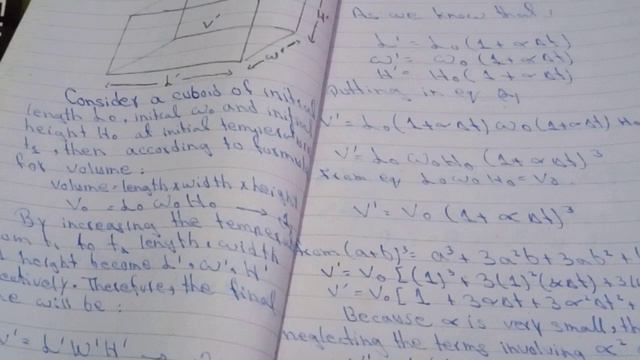 V'
H'
W'
L'
Consider a cuboid of initial
length Lo, initial wo and initial
height Ho at initial temperature
t1, then according to formula
for volume:
volume = length x width x height
Vo = Lo wo Ho → 1
By increasing the temper
om t1 to t2 length, width
height become L', w', H'
ectively. Therefore, the final
e will be:
V' = L'W'H' → 2
As we know that:
L' = Lo (1+α Δt)
w' = wo (1+α Δt)
H' = Ho (1+α Δt)
putting in eq
V' = Lo (1+αΔt) wo (1+αΔt) Ho
V' = Lo wo Ho (1+α Δt)³
from eq Lo wo Ho = Vo
V' = Vo (1+α Δt)³
from (a+b)³ = a³ + 3a²b + 3ab² +
V' = Vo [(1)³ + 3(1)²(αΔt) + 3(
V' = Vo [1 + 3αΔt + 3α²Δt² +
Because α is very small, th
neglecting the terms involving α²